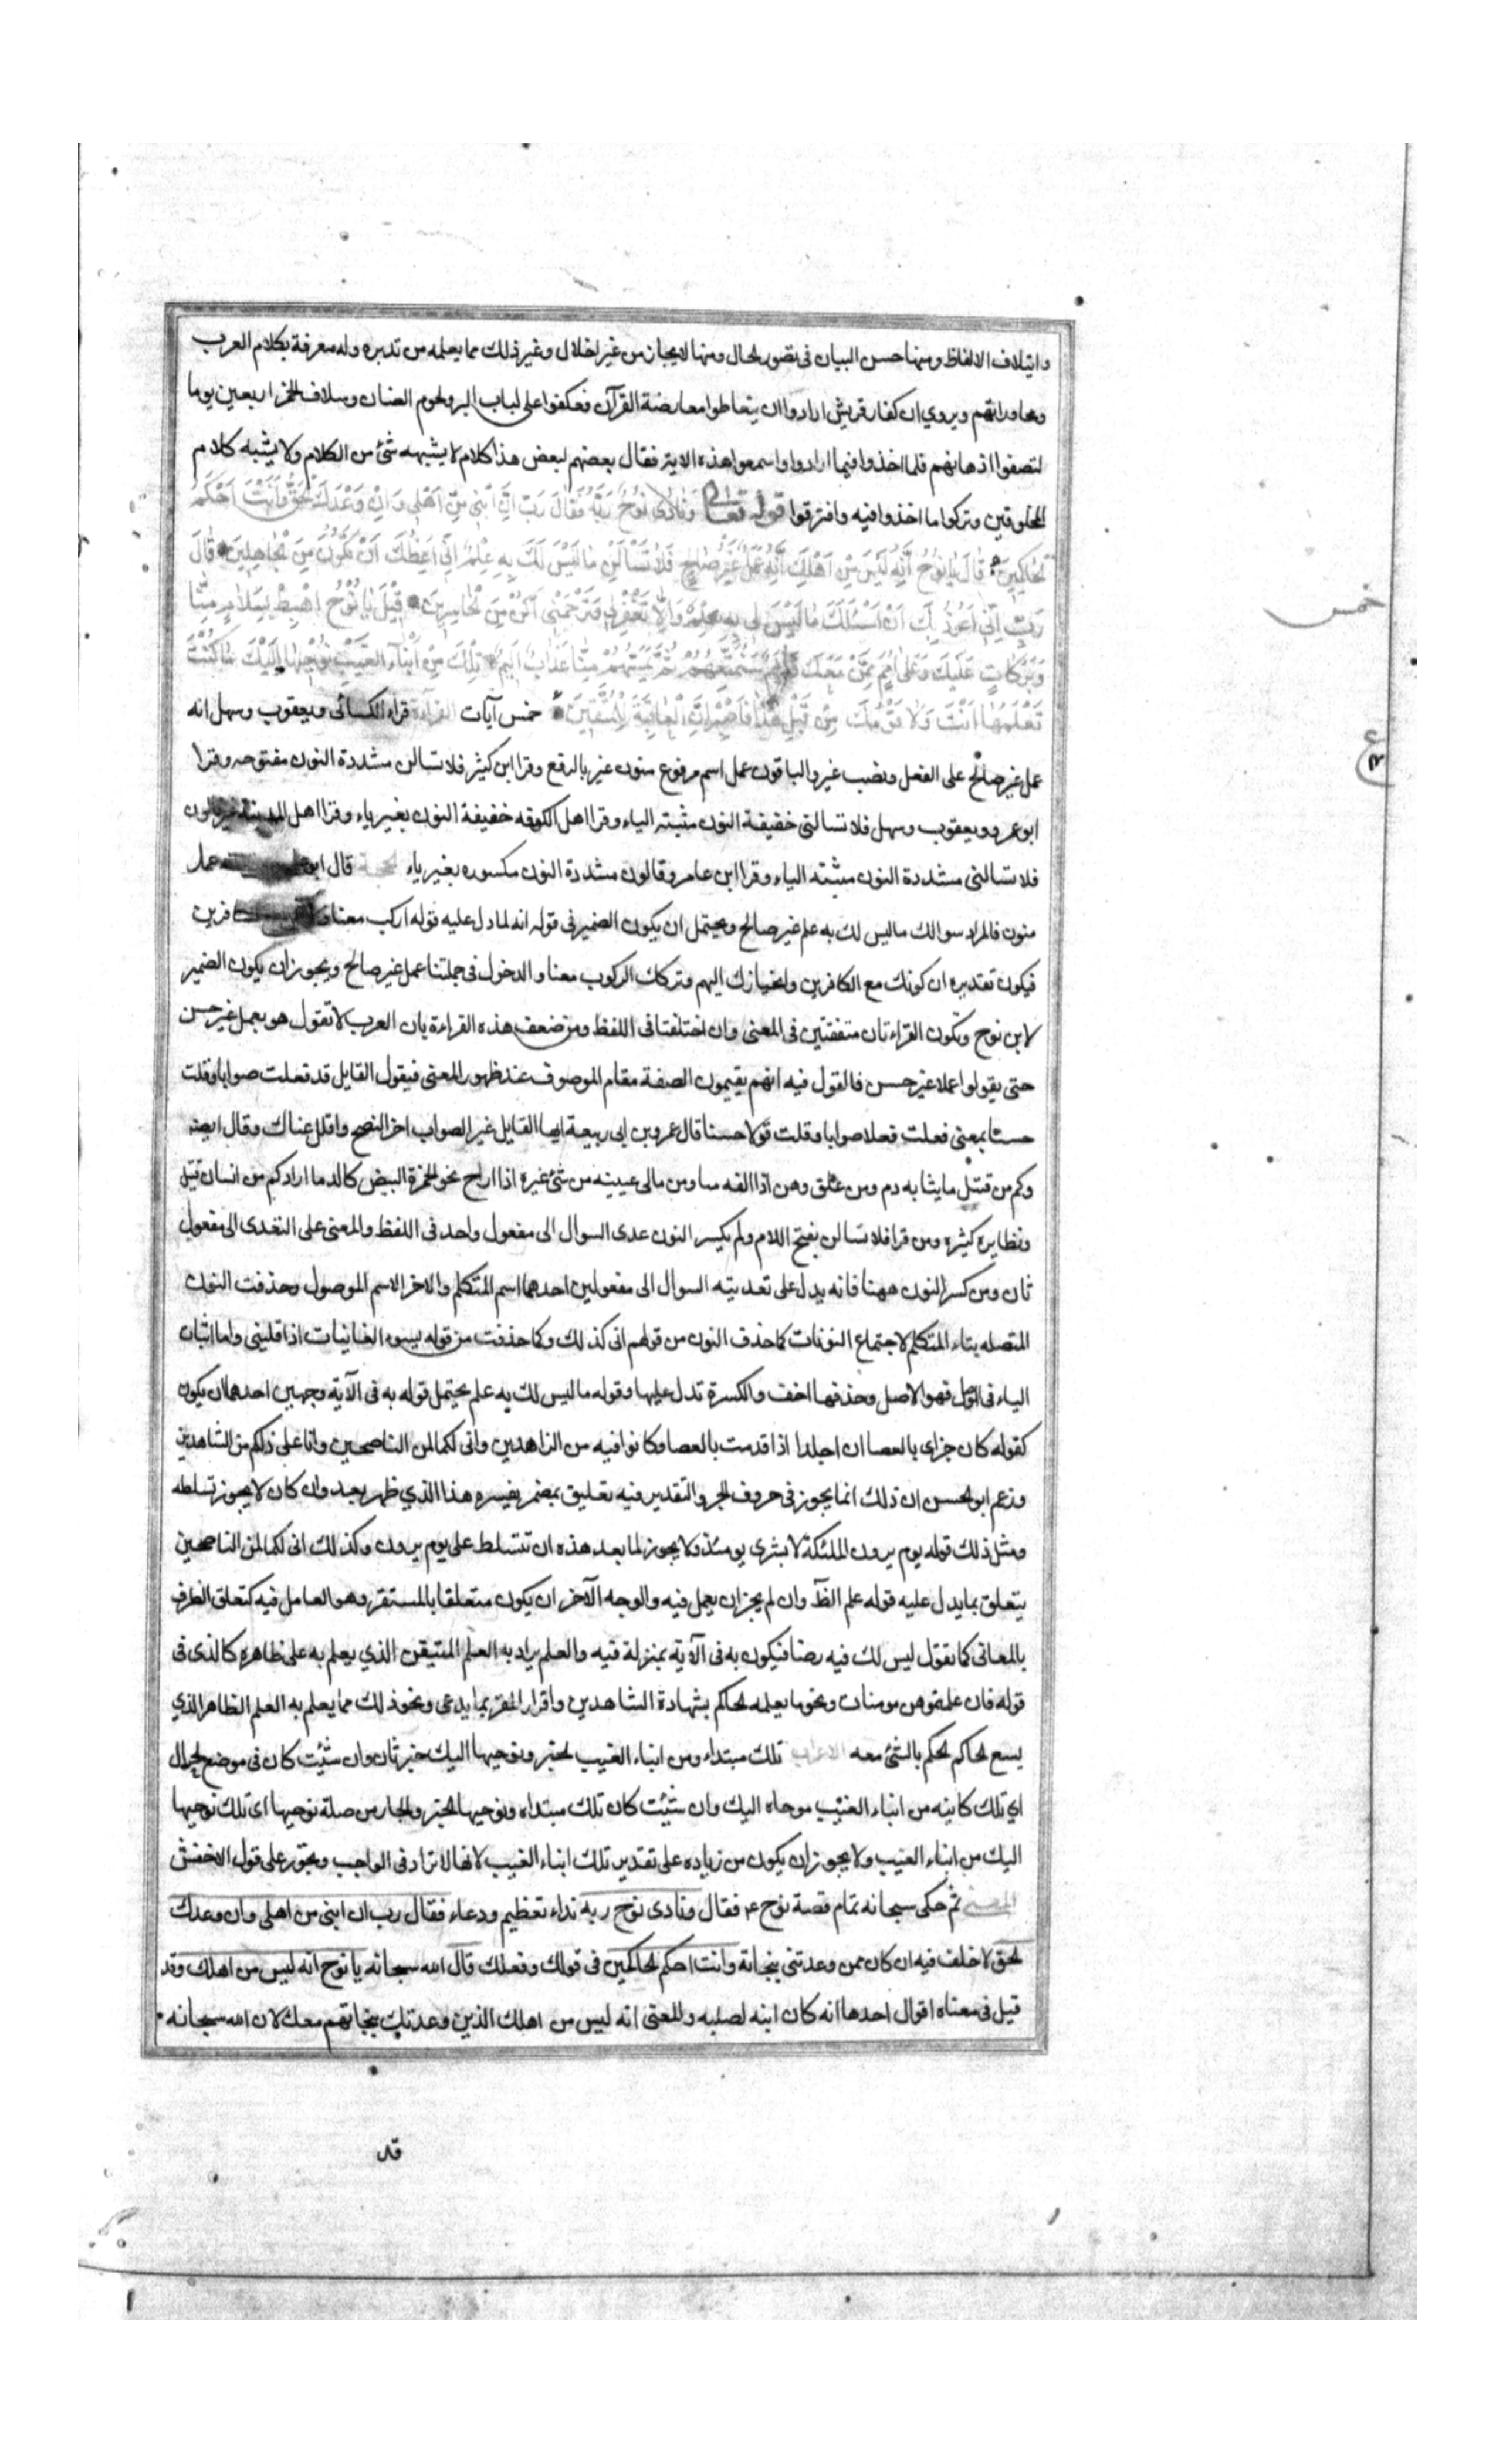 وايتلاف الالفاظ ومنها حسن البيان فى تصور الحال ومنها الايجاز من غير اخلال وغير ذلك مما يعلمه من تدبره وله معرفة بكلام العرب
ومحاوراتهم ويروي ان كفار قريش ارادوا ان يتعاطوا معارضة القرآن فعكفوا على لباب البر ولحوم الضان وسلاف الخمر اربعين يوما
لتصفوا اذهانهم فلما اخذوا فيما ارادوا واسمعوا هذه الاية فقال بعضهم لبعض هذا كلام لا يشبهه شئ من الكلام ولا يشبه كلام
المخلوقين وتركوا ما اخذوا فيه وافترقوا قوله تعالى وَنَادٰى نُوحٌ رَبَّهُ فَقَالَ رَبِّ اِنَّ ابْنِي مِنْ اَهْلِي وَاِنَّ وَعْدَكَ الْحَقُّ وَاَنْتَ اَحْكَمُ
الْحَاكِمِينَ قَالَ يَا نُوحُ اِنَّهُ لَيْسَ مِنْ اَهْلِكَ اِنَّهُ عَمَلٌ غَيْرُ صَالِحٍ فَلَا تَسْأَلْنِ مَا لَيْسَ لَكَ بِهِ عِلْمٌ اِنِّي اَعِظُكَ اَنْ تَكُونَ مِنَ الْجَاهِلِينَ قَالَ
رَبِّ اِنِّي اَعُوذُ بِكَ اَنْ اَسْئَلَكَ مَا لَيْسَ لِي بِهِ عِلْمٌ وَاِلَّا تَغْفِرْ لِي وَتَرْحَمْنِي اَكُنْ مِنَ الْخَاسِرِينَ قِيلَ يَا نُوحُ اهْبِطْ بِسَلَامٍ مِنَّا
وَبَرَكَاتٍ عَلَيْكَ وَعَلٰى اُمَمٍ مِمَّنْ مَعَكَ وَاُمَمٌ سَنُمَتِّعُهُمْ ثُمَّ يَمَسُّهُمْ مِنَّا عَذَابٌ اَلِيمٌ تِلْكَ مِنْ اَنْبَاءِ الْغَيْبِ نُوحِيهَا اِلَيْكَ مَا كُنْتَ
تَعْلَمُهَا اَنْتَ وَلَا قَوْمُكَ مِنْ قَبْلِ هٰذَا فَاصْبِرْ اِنَّ الْعَاقِبَةَ لِلْمُتَّقِينَ خمس آيات القراءة قراء الكسائى ويعقوب وسهل انه
خمس
عمل غير صالح على الفعل ونصب غير والباقون عمل اسم مرفوع منون غير بالرفع وقرا ابن كثير فلا تسالن مشددة النون مفتوحه وقرا
ع
ابو عمرو ويعقوب وسهل فلا تسالنى خفيفة النون مثبته الياء وقرا اهل الكوفه خفيفة النون بغير ياء وقرا اهل المدينة غير قالون
فلا تسالنى مشددة النون مثبته الياء وقرا ابن عامر وقالون مشددة النون مكسوره بغير ياء الحجة قال ابو عمل
منون فالمراد سوالك ما ليس لك به علم غير صالح ويحتمل ان يكون الضمير فى قوله انه لما دل عليه قوله اركب معنا فرين
فيكون تقديره ان كونك مع الكافرين وانحيازك اليهم وتركك الركوب معنا والدخول فى جملتنا عمل غير صالح ويجوز ان يكون الضمير
لابن نوح وتكون القراءتان متفقتين فى المعنى وان اختلفتا فى اللفظ ومن ضعف هذه القراءة بان العرب لا تقول هو يعمل غير حسن
حتى يقولوا عملا غير حسن فالقول فيه انهم يقيمون الصفة مقام الموصوف عند ظهور المعنى فيقول القايل قد فعلت صوابا وقلت
حسنا بمعنى فعلت فعلا صوابا وقلت قولا حسنا قال عمرو بن ابى ربيعة ايها القايل غير الصواب اخر النصح واقلل عتابك وقال ايضه
وكم من قتيل ما يثابه دم ومن علق وهن اذا الفه مما ومن مالى عينيه من شئ غيره اذا راح نحو الجمرة البيض كالدما اراد كم من انسان قتيل
ونظايره كثيره ومن قرا فلا تسالن بفتح اللام ولم يكسر النون عدى السوال الى مفعول واحد فى اللفظ والمعنى على التعدى الى مفعول
ثان ومن كسر النون ههنا فانه يدل على تعديته السوال الى مفعولين احدهما اسم المتكلم والاخر الاسم الموصول وحذفت النون
المتصله بتاء المتكلم لاجتماع النونات كما حذف النون من قولهم انى كذلك وكما حذفت من قوله يسوء الغانيات اذا قلينى واما اثبات
الياء فى الوصل فهو الاصل وحذفها اخف والكسرة تدل عليها وقوله ما ليس لك به علم يحتمل قوله به فى الآية وجهين احدهما ان يكون
كقوله كان جزاى بالعصا ان اجلدا اذا قدمت بالعصا وكانوا فيه من الزاهدين وانى لكما لمن الناصحين وانا على ذلكم من الشاهدين
وزعم ابو الحسن ان ذلك انما يجوز فى حروف الجر والتقدير فيه تعليق بمضمر يفسره هذا الذي ظهر بعد وان كان لا يجوز تسلطه
ومثل ذلك قوله يوم يرون الملئكة لا بشرى يومئذ ولا يجوز لما بعد هذه ان تتسلط على يوم يرون وكذلك انى لكما لمن الناصحين
يتعلق بما يدل عليه قوله علم الظ وان لم يجز ان يعمل فيه والوجه الآخر ان يكون متعلقا بالمستقر وهو العامل فيه كتعلق الظرف
بالمعانى كما تقول ليس لك فيه رضا فيكون به فى الآية بمنزلة فيه والعلم يراد به العلم المتيقن الذي يعلم به على ظاهره كالذى فى
قوله فان علمتموهن مومنات ونحو ما يعلمه الحاكم بشهادة الشاهدين واقرار المقر بما يدعى ونحو ذلك مما يعلم به العلم الظاهر الذي
يسع الحاكم الحكم بالشئ معه الاعراب تلك مبتداء ومن انباء الغيب الخبر ونوحيها اليك خبر ثان وان شئت كان فى موضع الحال
اي تلك كاينه من انباء الغيب موحاه اليك وان شئت كان تلك مبتداء ونوحيها الخبر والجار من صلة نوحيها اى تلك نوحيها
اليك من انباء الغيب ولا يجوز ان يكون من زياده على تقدير تلك انباء الغيب لانها لا تزاد فى الواجب ويجوز على قول الاخفش
المعنى ثم حكى سبحانه تمام قصة نوح ع فقال ونادى نوح ربه نداء تعظيم ودعاء فقال رب ان ابنى من اهلى وان وعدك
الحق لا خلف فيه ان كان ممن وعدتنى بنجاته وانت احكم الحاكمين فى قولك وفعلك قال الله سبحانه يا نوح انه ليس من اهلك وقد
قيل فى معناه اقوال احدها انه كان ابنه لصلبه والمعنى انه ليس من اهلك الذين وعدتك بنجاتهم معك لان الله سبحانه
قد